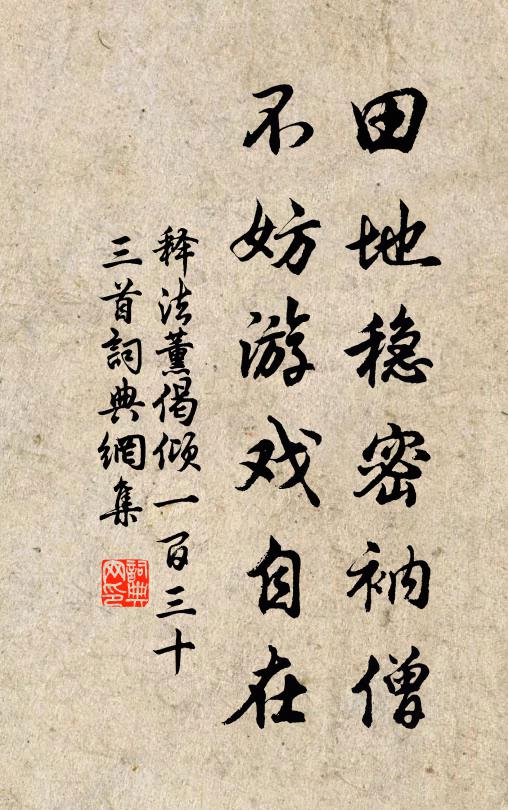 田地稳密衲僧
不妨游戏自在
释法薰偈倾一百三十
三首詞典網集
詞典
网印